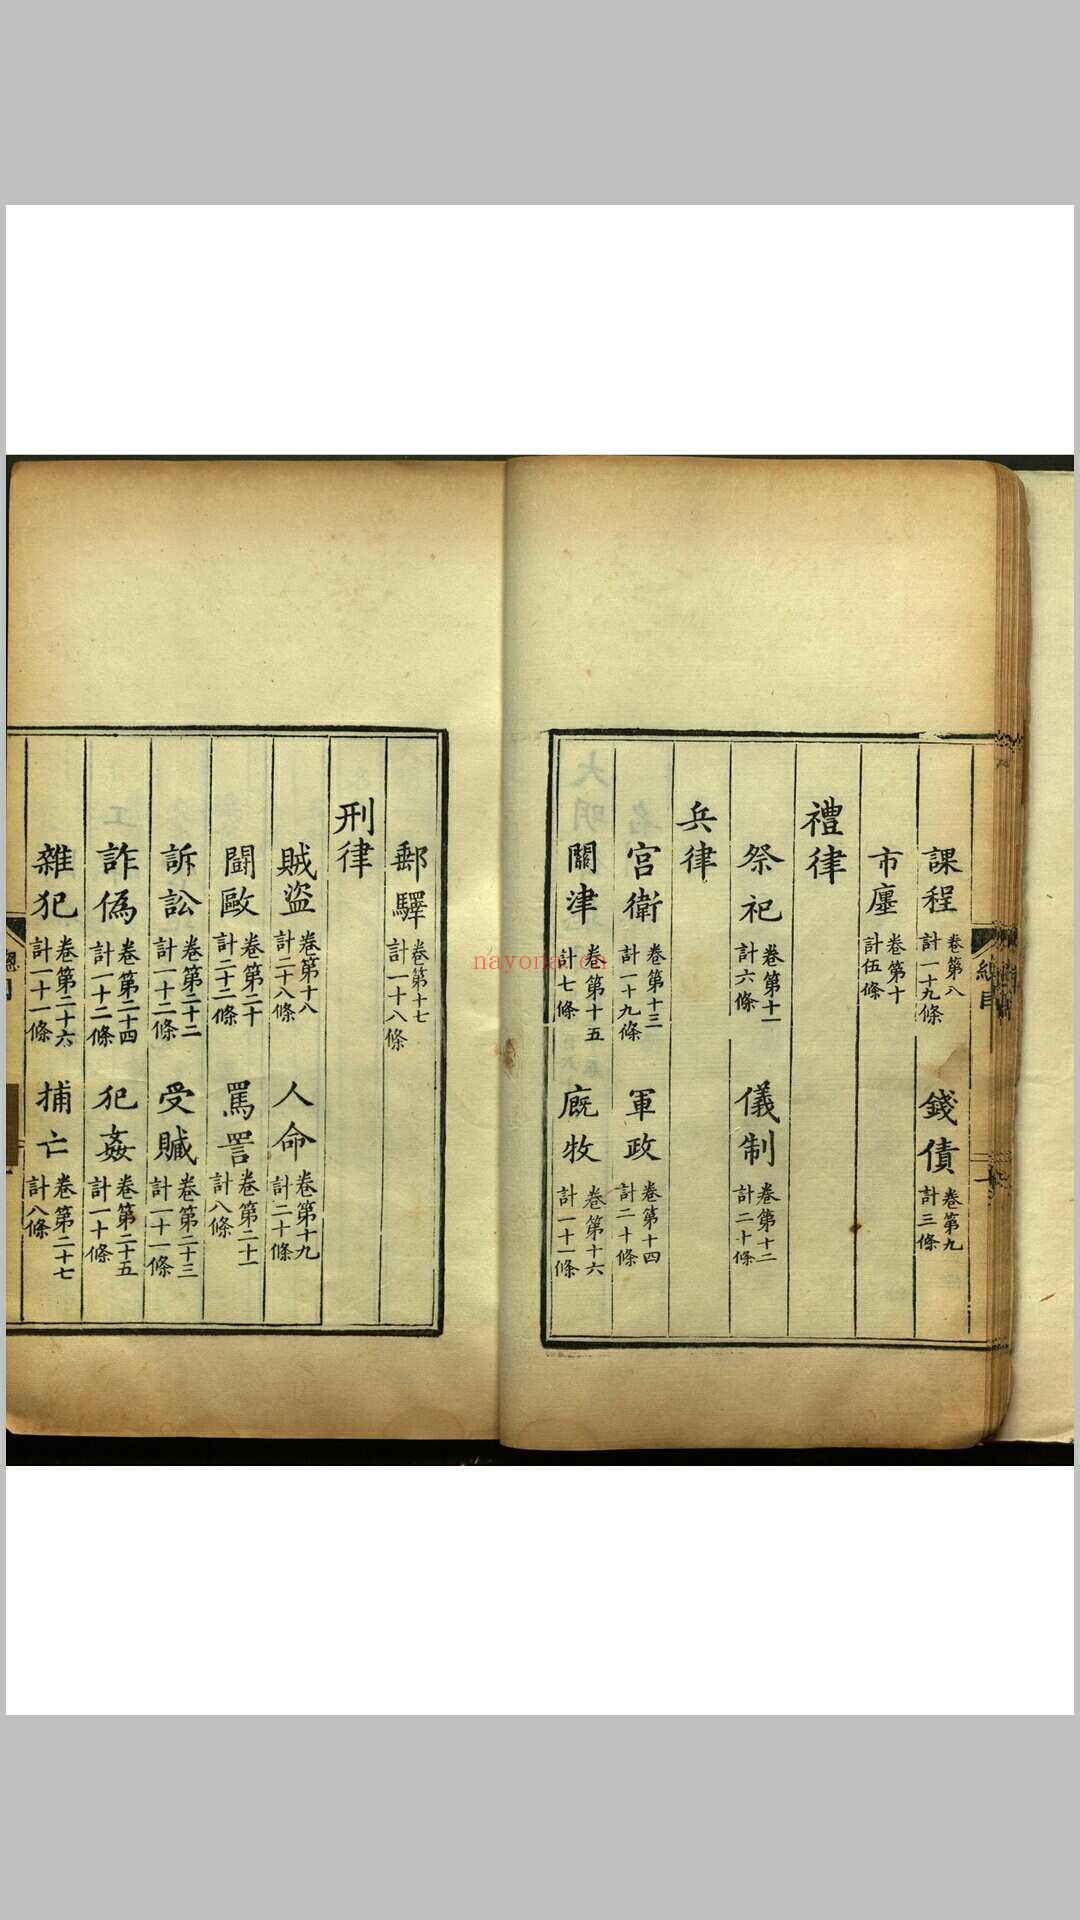 課程 卷第八 計一十九條 錢債 卷第九 計三條
市廛 卷第十 計伍條
禮律
祭祀 卷第十一 計六條 儀制 卷第十二 計二十條
兵律
宮衛 卷第十三 計一十九條 軍政 卷第十四 計二十條
關津 卷第十五 計七條 廐牧 卷第十六 計一十一條
郵驛 卷第十七 計一十八條
刑律
賊盜 卷第十八 計二十八條 人命 卷第十九 計二十條
鬪毆 卷第二十 計二十二條 罵詈 卷第二十一 計八條
訴訟 卷第二十二 計一十二條 受贓 卷第二十三 計一十一條
詐偽 卷第二十四 計一十二條 犯姦 卷第二十五 計一十條
雜犯 卷第二十六 計一十一條 捕亡 卷第二十七 計八條
總目
nayona.cn